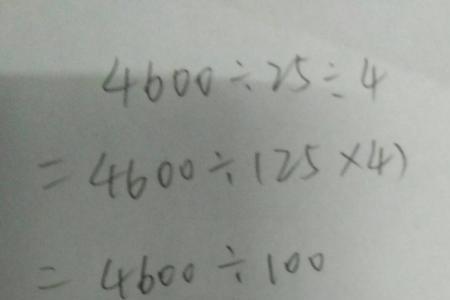 4600÷25÷4
=4600÷(25×4)
=4600÷100